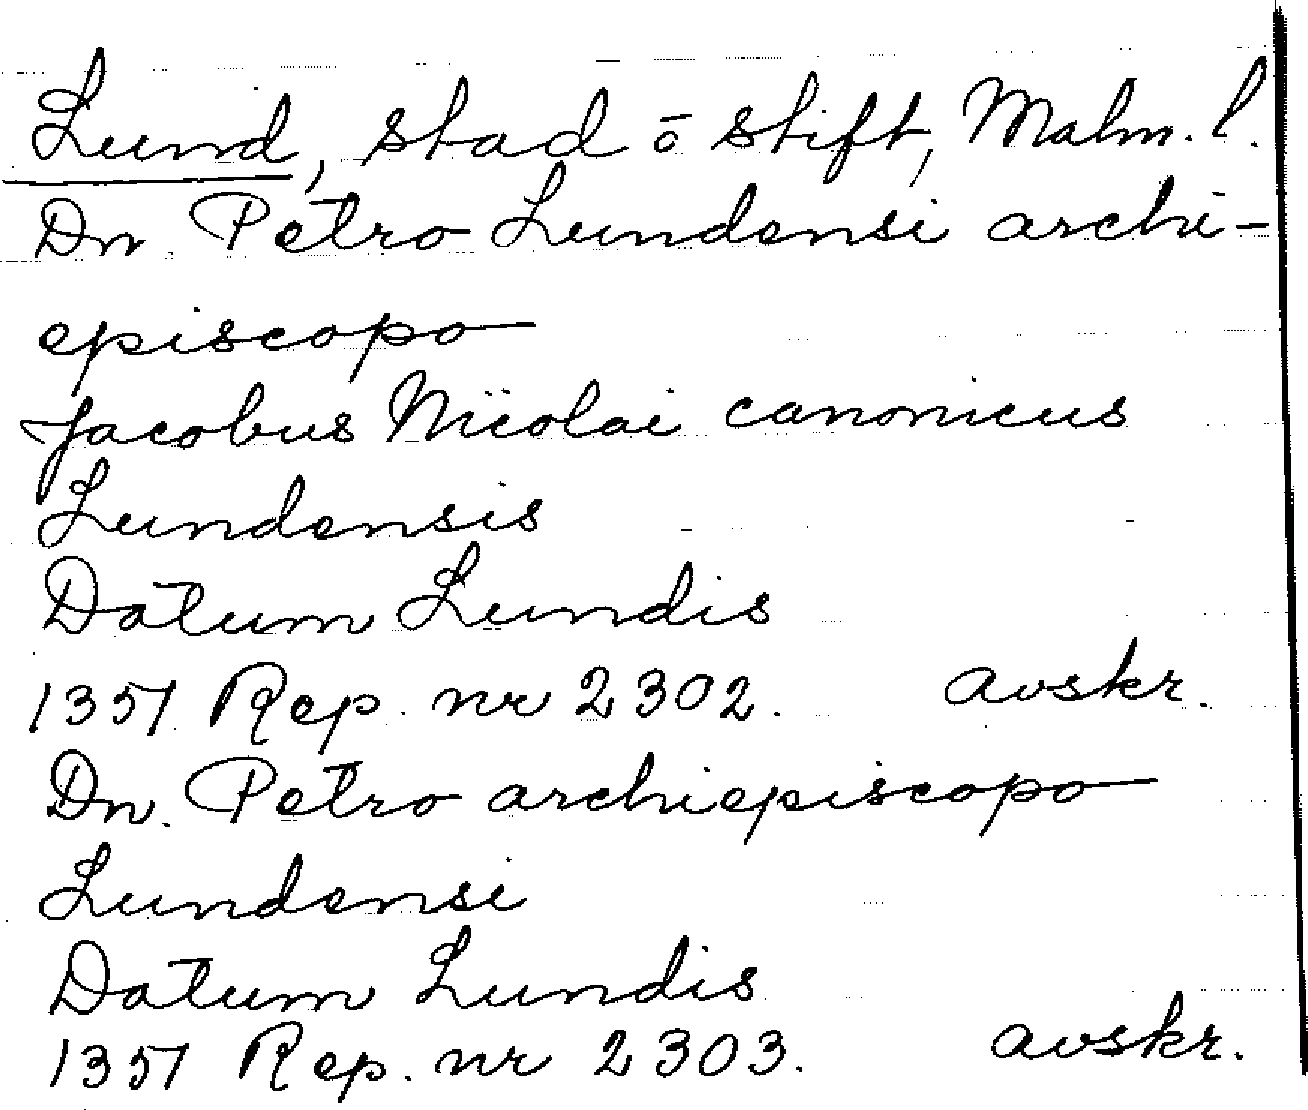 Lund, stad ō stift, Malm. l.
Dn. Petro Lundensi archi-
episcopo
Jacobus Nicolai canonicus
Lundensis
Datum Lundis
1357 Rep. nr 2302. avskr.
Dn. Petro archiepiscopo
Lundensi
Datum Lundis
1357 Rep. nr 2303. avskr.